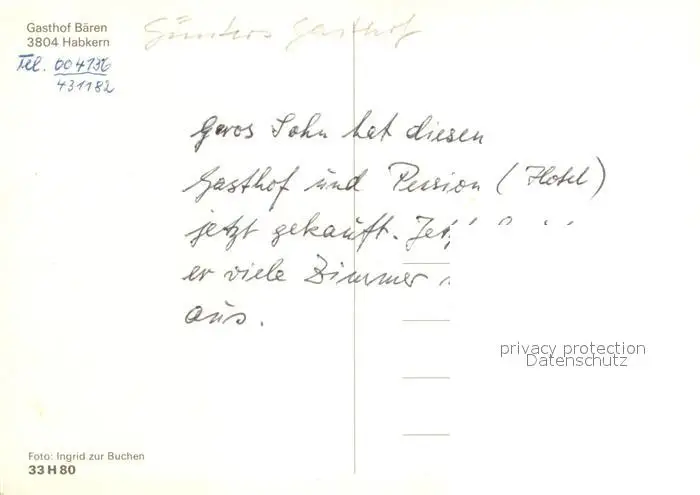 Gasthof Bären
3804 Habkern
Tel. 004136
431182
Günters Gasthof
Geros Sohn hat diesen
Gasthof und Pension (Hotel)
jetzt gekauft.
er viele Zimmer
aus.
privacy protection
Datenschutz
Foto: Ingrid zur Buchen
33 H 80